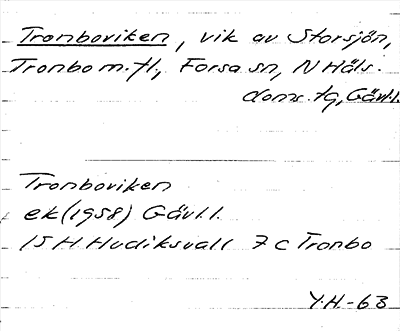 Tronboviken, vik av Storsjön,
Tronbo m.fl., Forsa sn, N Häls.
doms.tg, Gävl.l.
Tronboviken
ek (1958) Gävl.l.
15 H Hudiksvall 7 c Tronbo
Y.H.-63